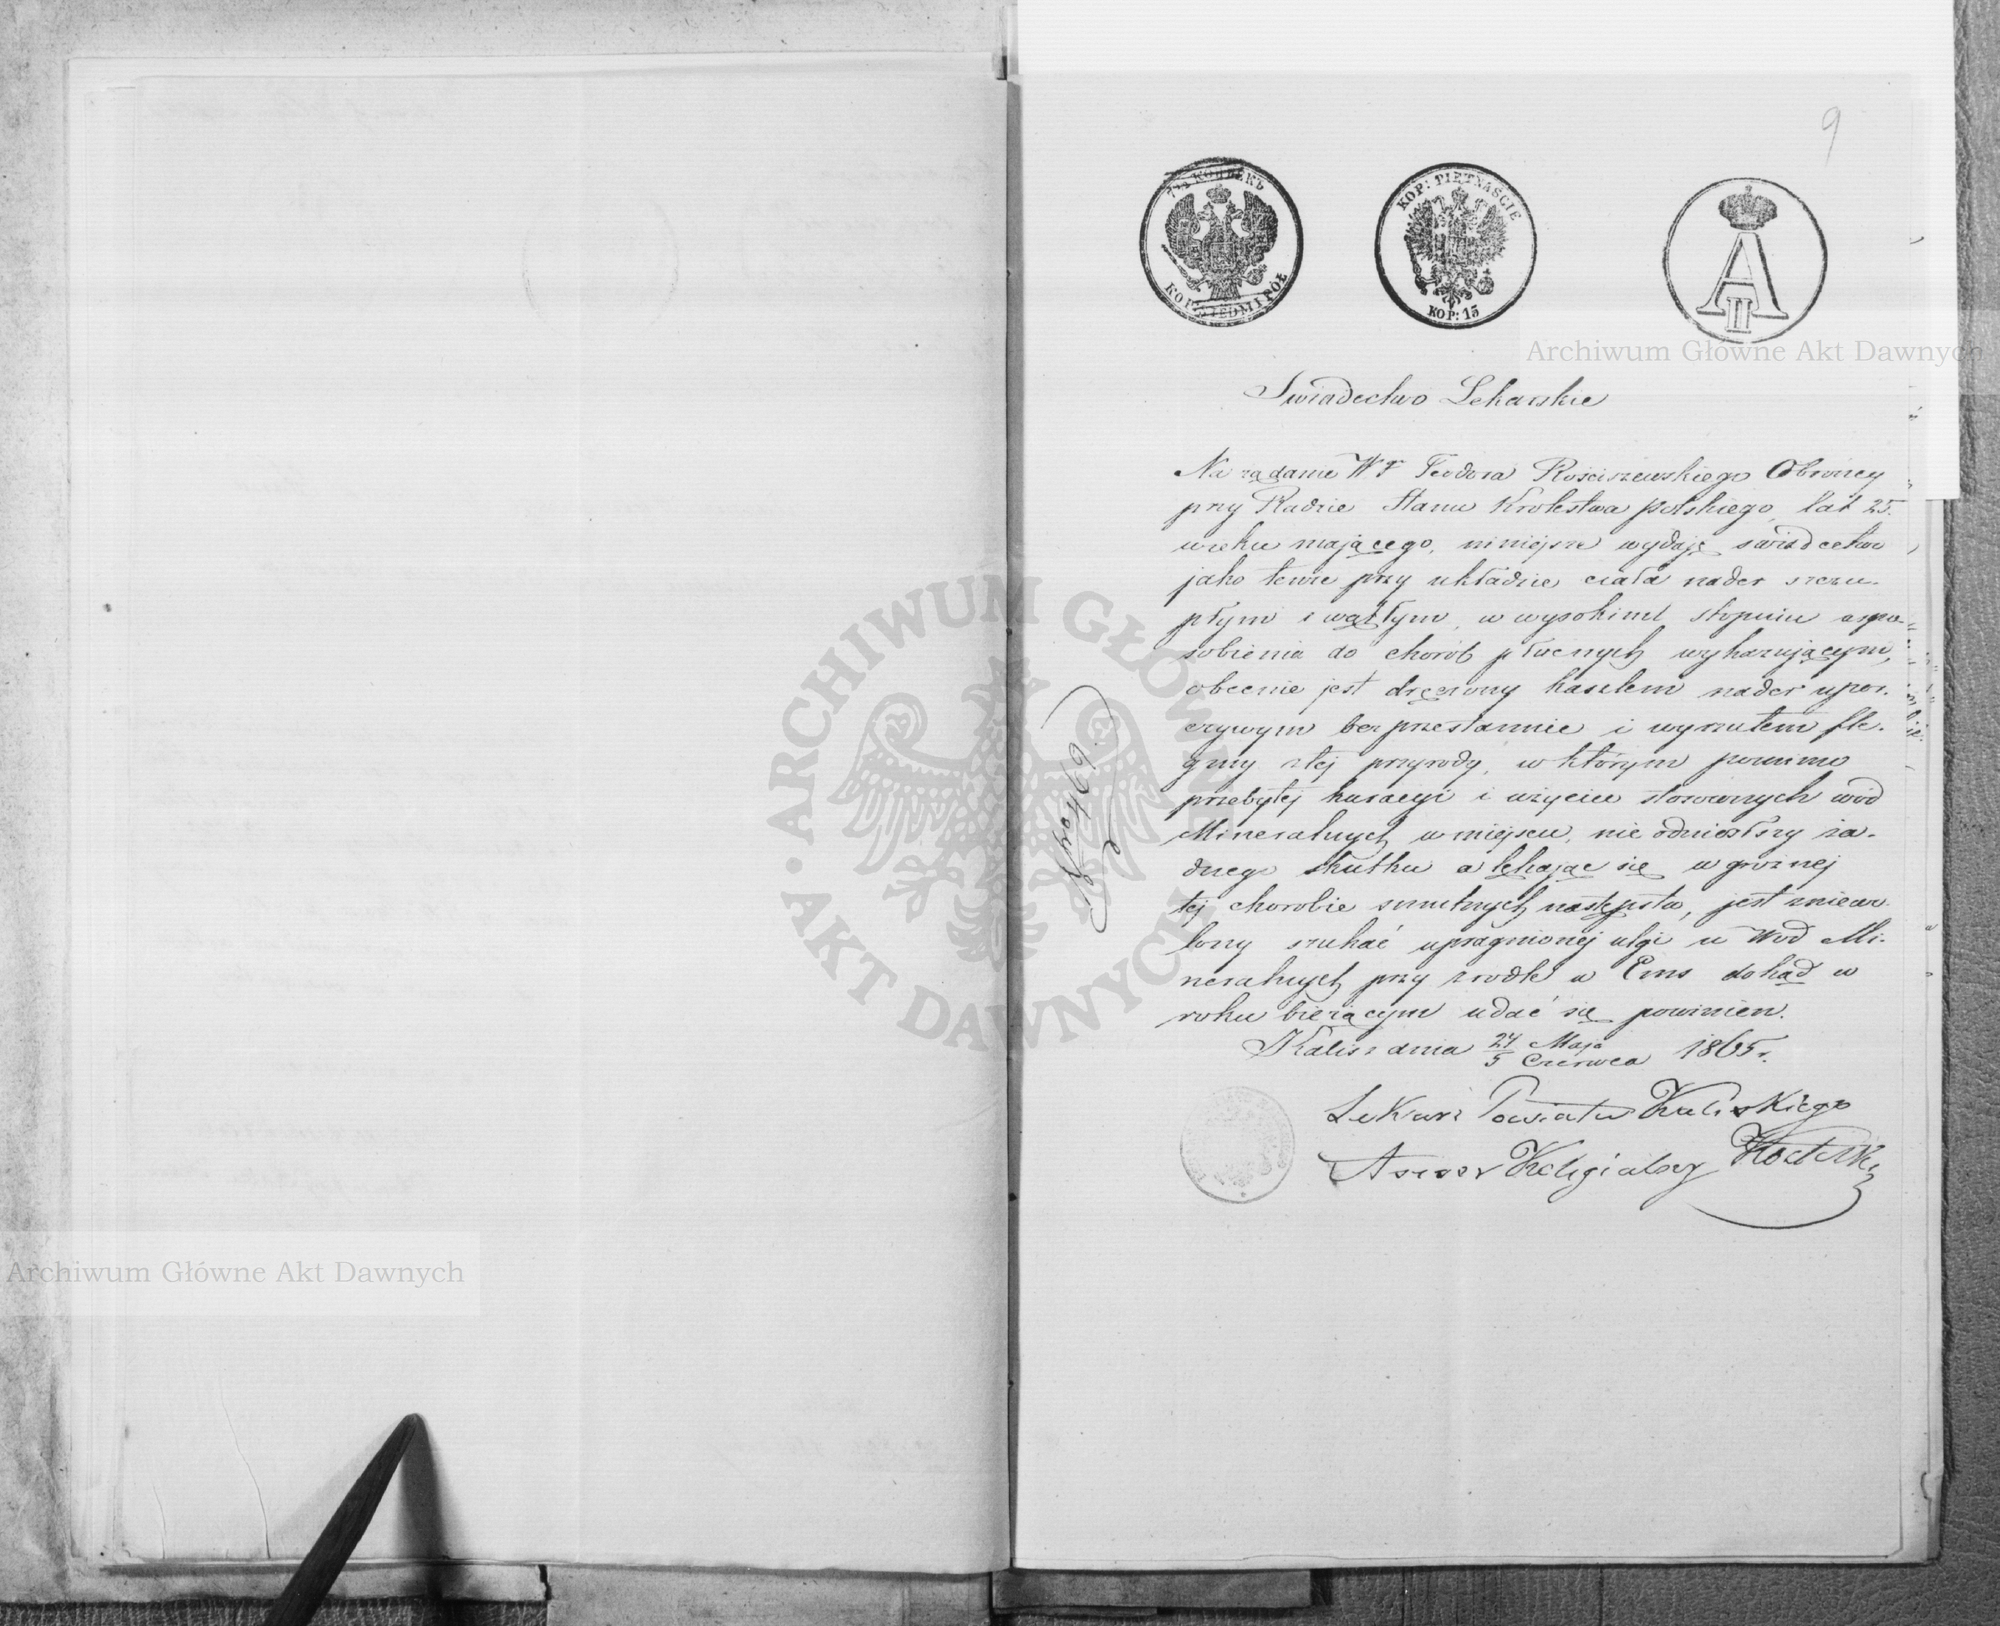 9
7½ КОПѢЕКЪ
KOP: SIEDM I PÓŁ
KOP: PIĘTNAŚCIE
KOP: 15
A II
Archiwum Główne Akt Dawnych
Swiadectwo Lekarskie
Na rządanie WP Teodora Rościszewskiego Obrońcy
przy Radzie Stanu Krolestwa Polskiego, lat 25.
wieku mającego, niniejsze wydaję swiadectwo
jako tenze przy układzie ciała nader szczu-
płym i wątłym, w wysokim stopniu uspo-
sobienia do chorób płucnych wykazującym,
obecnie jest dręczony kaszlem nader upor-
czywym bezprzestannie i wyrzutem fle-
gmy złej przyrody, w którym pomimo
przebytej kuracyi i użycie stosownych wód
Mineralnych w miejscu, nie odniosłszy ża-
dnego skutku a lękając się w groznej
tej chorobie smutnych następstw, jest zniewo-
lony szukać upragnionej ulgi u Wod Mi-
neralnych przy zrodle w Ems dokąd w
roku bieżącym udać się powinien.
Kalisz dnia 24 Maja / 5 Czerwca 1865 r.
Lekarz Powiatu Kaliskiego
Asesor Kolegialny
ARCHIWUM GŁÓWNE AKT DAWNYCH
Archiwum Główne Akt Dawnych